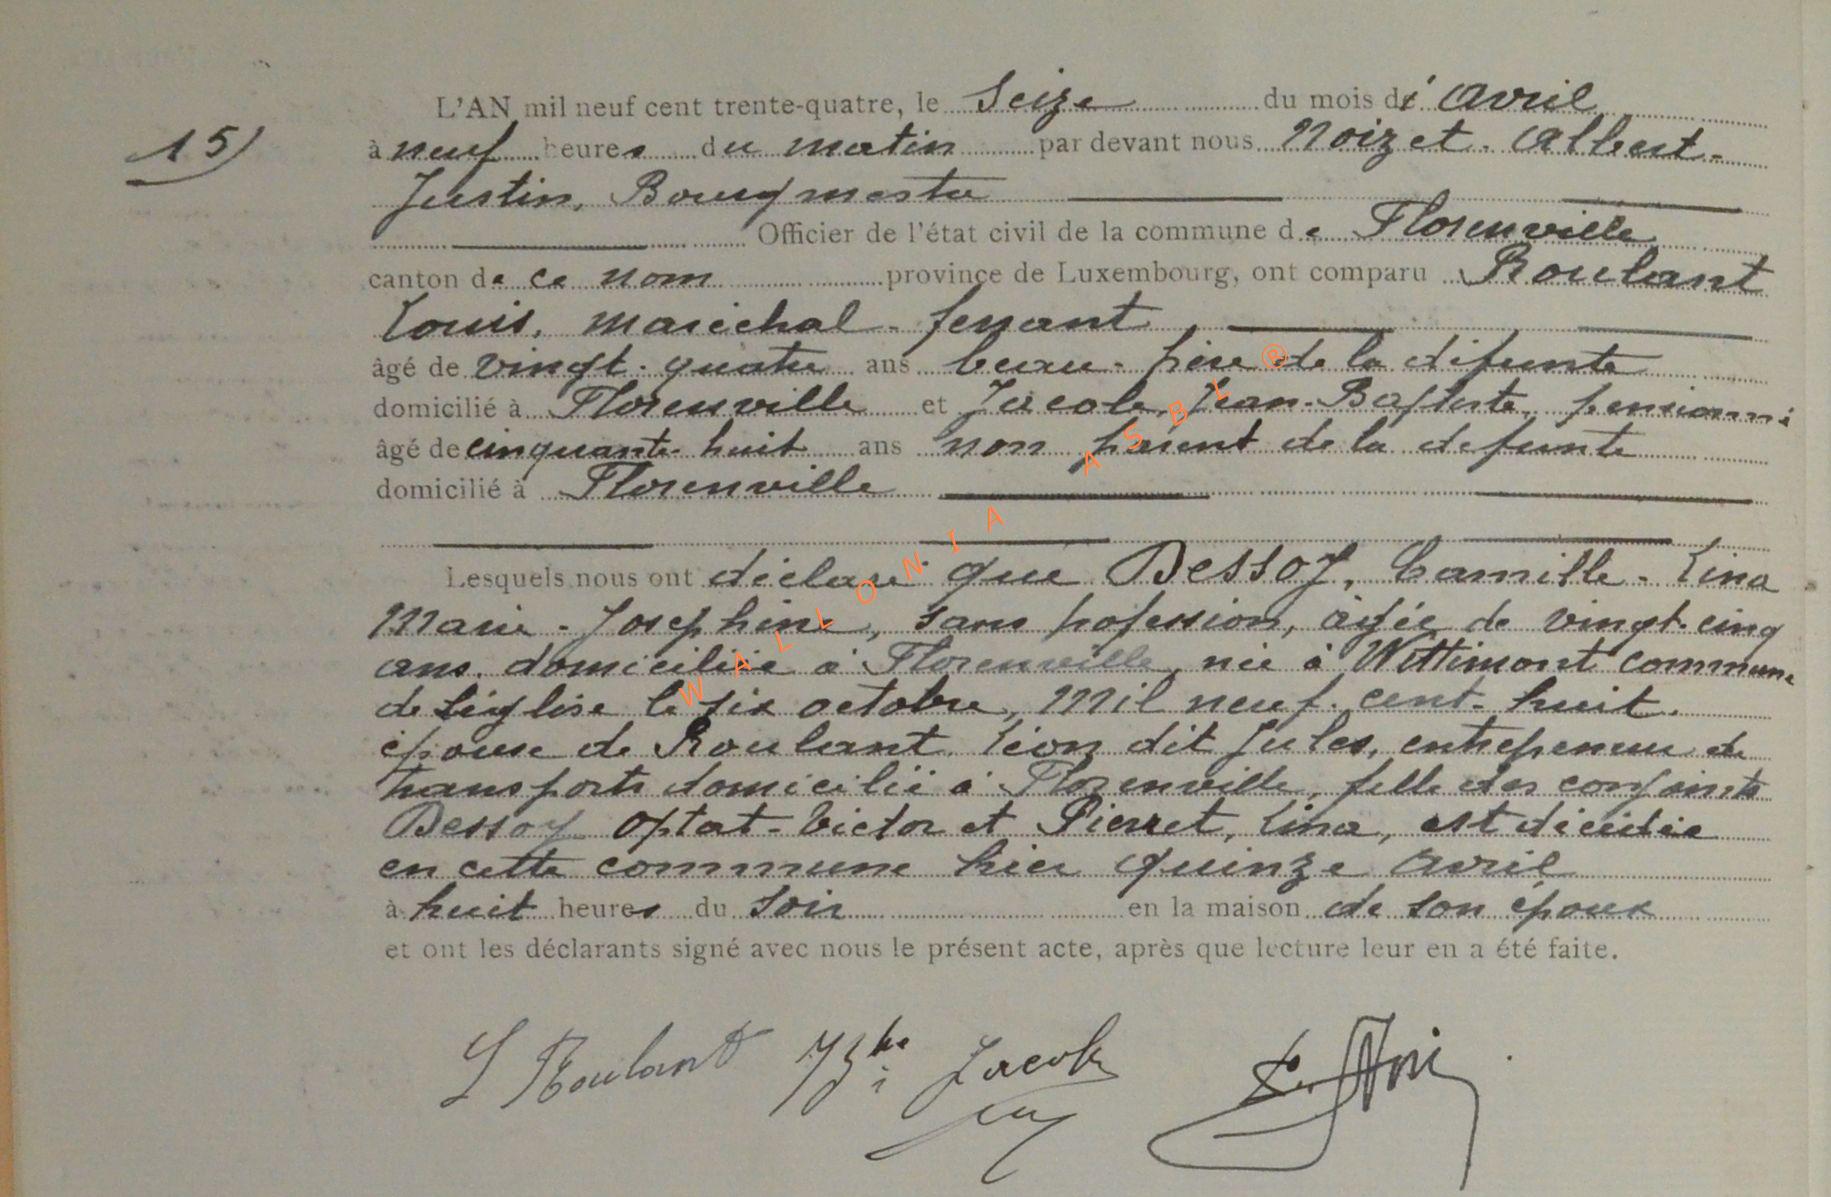 L'AN mil neuf cent trente-quatre, le Seize du mois d'Avril
15)
à neuf heures du matin par devant nous Noizet. Albert-
Justin, Bourgmestre
Officier de l'état civil de la commune de Florenville
canton de ce nom province de Luxembourg, ont comparu Roulant
Louis, maréchal-ferrant
âgé de vingt-quatre ans beau-frère de la défunte
domicilié à Florenville et Jacob, Jean-Baptiste, pensionné
âgé de cinquante-huit ans non parent de la défunte
domicilié à Florenville
Lesquels nous ont déclaré que Dessoy, Camille-Lina
Marie-Josephine, sans profession, âgée de vingt-cinq
ans. domiciliée à Florenville, née à Wittimont commune
de Léglise le six octobre, Mil neuf cent-huit.
épouse de Roulant Léon dit Jules, entrepreneur de
transports domicilié à Florenville, fille des conjoints
Dessoy Optat-Victor et Pierret, Lina, est décédée
en cette commune hier quinze Avril
à huit heures du soir en la maison de son époux
et ont les déclarants signé avec nous le présent acte, après que lecture leur en a été faite.
L Roulant Jacob
WALLONIA ASBL ®